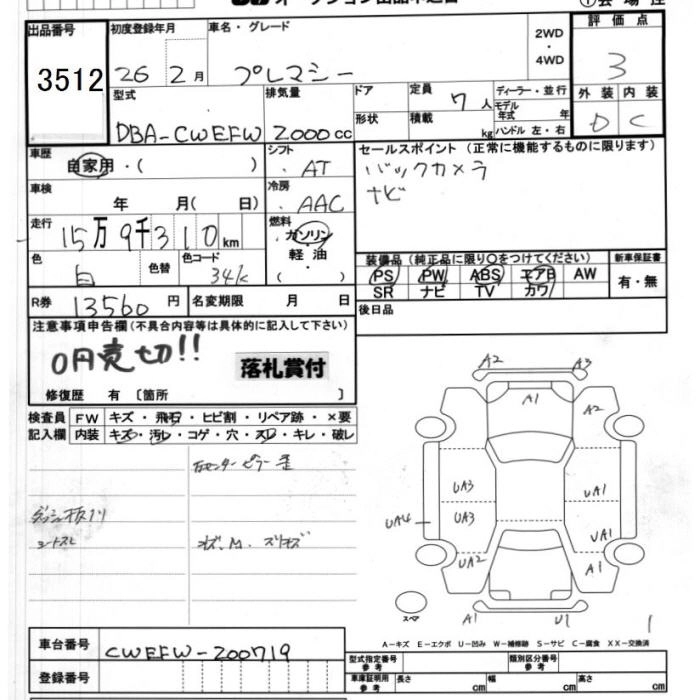 評価点
出品番号
初度登録年月
車名・グレード
2WD
・
4WD
3512
26 2月
プレマシー
3
型式
排気量
ドア
形状
定員
7人
積載
kg
ディーラー・並行
モデル
年式 年
ハンドル 左・右
外装 内装
D C
DBA-CWEFW
2000cc
車歴
自家用・( )
シフト
・AT
セールスポイント (正常に機能するものに限ります)
バックカメラ
ナビ
車検
年 月( 日)
冷房
・AAC
走行
15万9千310km
燃料
・ガソリン
・軽油
・( )
色
白
色替
色コード
34K
装備品 (純正品に限り○をつけてください)
新車保証書
PS PW ABS エアB AW
有・無
SR ナビ TV カワ
R券 13560円
名変期限 月 日
後日品
注意事項申告欄(不具合内容等は具体的に記入して下さい)
0円売切!!
落札賞付
修復歴 有 〔箇所 〕
検査員
記入欄
FW キズ・飛石・ヒビ割・リペア跡・×要
内装 キズ・汚レ・コゲ・穴・スレ・キレ・破レ
シートスレ
A2 A3
A1
A2
UA3
UA3
UA4
UA2
UA1
UA1
A1
スペア
A1 U1
1
A-キズ E-エクボ U-凹み W-補修跡 S-サビ C-腐食 XX-交換済
車台番号
CWEFW-200719
登録番号
型式指定番号
参考
類別区分番号
参考
車庫証明用
参考
長さ cm
幅 cm
高さ cm